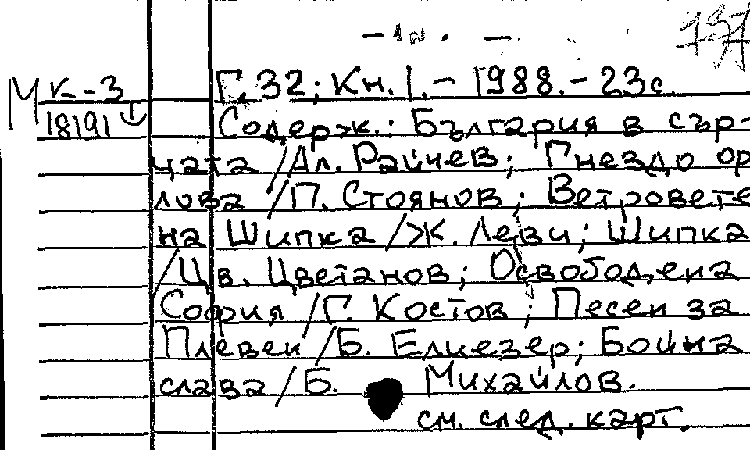 - 10. -
137
М К-3 Г.32; Кн.1.- 1988.-23с
18191 Содерж.: България в сър-
цата /Ал. Райчев; Гнездо ор
лова /П. Стоянов; Ветровете
на Шипка /Ж. Леви; Шипка
/Цв. Цветанов; Освободена
София /Г. Костов; Песен за
Плевен /Б. Елиезер; Бойна
слава /Б. Михайлов.
см. след. карт.